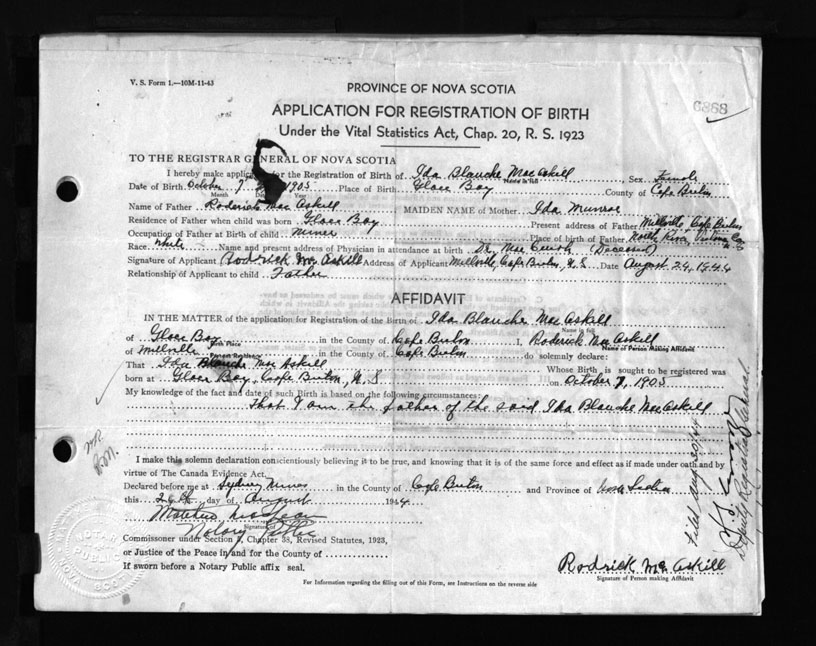 V. S. Form 1.—10M-11-43
PROVINCE OF NOVA SCOTIA
6868
APPLICATION FOR REGISTRATION OF BIRTH
Under the Vital Statistics Act, Chap. 20, R. S. 1923
TO THE REGISTRAR GENERAL OF NOVA SCOTIA
I hereby make application for the Registration of Birth of Ida Blanche MacAskill Sex Female
Name in full
Date of Birth October 7 1903 Place of Birth Glace Bay County of Cape Breton
Month Year
Name of Father Roderick MacAskill MAIDEN NAME of Mother Ida Munroe
Residence of Father when child was born Glace Bay Present address of Father Millville Cape Breton
Occupation of Father at Birth of child miner Place of birth of Father North River, Victoria Co
Race White Name and present address of Physician in attendance at birth Dr. Mac (Deceased)
Signature of Applicant Rodrick Mc Askill Address of Applicant Millville, Cape Breton, N. S. Date August 26, 1944
Relationship of Applicant to child Father
AFFIDAVIT
IN THE MATTER of the application for Registration of the Birth of Ida Blanche MacAskill
Name in full
of Glace Bay in the County of Cape Breton I, Roderick MacAskill
Birth Place Name of Person Making Affidavit
of Millville in the County of Cape Breton do solemnly declare:
Present Residence
That Ida Blanche MacAskill Whose Birth is sought to be registered was
born at Glace Bay, Cape Breton, N S on October 7, 1903
My knowledge of the fact and date of such Birth is based on the following circumstances:
That I am the father of the said Ida Blanche MacAskill
I make this solemn declaration conscientiously believing it to be true, and knowing that it is of the same force and effect as if made under oath and by
virtue of The Canada Evidence Act.
Declared before me at Sydney Mines in the County of Cape Breton and Province of Nova Scotia
this 26th day of August 1944
Notary Public
Commissioner under Section 7, Chapter 38, Revised Statutes, 1923,
or Justice of the Peace in and for the County of
If sworn before a Notary Public affix seal.
Rodrick Mc Askill
Signature of Person making Affidavit
For Information regarding the filling out of this Form, see Instructions on the reverse side
Filed Aug 30/44
Deputy Registrar General
NOTARY PUBLIC
NOVA SCOTIA